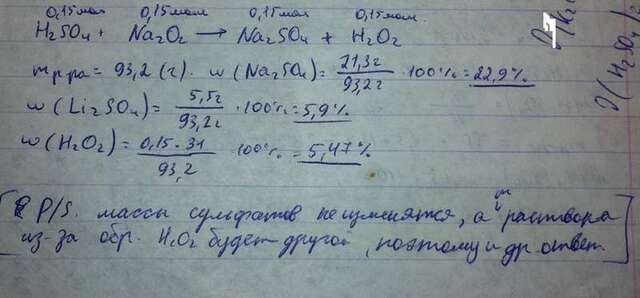 0,15мол 0,15мол 0,15мол 0,15мол.
H₂SO₄ + Na₂O₂ → Na₂SO₄ + H₂O₂
m р-ра = 93,2 (г). w(Na₂SO₄) = 21,3г/93,2г · 100% = 22,9%
w(Li₂SO₄) = 5,5г/93,2г · 100% = 5,9%
w(H₂O₂) = 0,15·34/93,2 100% = 5,47%
[P/S. массы сульфатов не изменятся, а m раствора
из-за обр. H₂O₂ будет другой, поэтому и др ответ.]
(H₂SO₄)